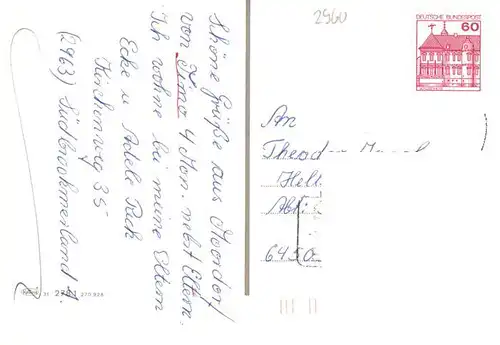 2960
DEUTSCHE BUNDESPOST
60
Schöne Grüße aus Moordorf
von Timo 4 Mon. nebst Eltern.
Ich wohne bei meine Eltern
Ecke u Adele Peck
Kirchenweg 35
(2963) Südbrookmerland 1.
An
Theodor
Helt
6450
270 828